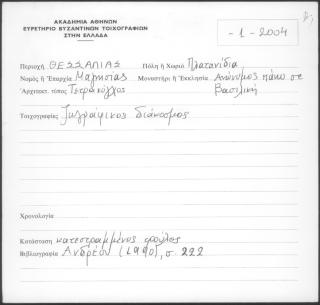 ΑΚΑΔΗΜΙΑ ΑΘΗΝΩΝ
ΕΥΡΕΤΗΡΙΟ ΒΥΖΑΝΤΙΝΩΝ ΤΟΙΧΟΓΡΑΦΙΩΝ
ΣΤΗΝ ΕΛΛΑΔΑ
- 1 - 2004
Περιοχή ΘΕΣΣΑΛΙΑΣ Πόλη ή Χωριό Πλατανίδια,
Νομός ή Ἐπαρχία Μαγνησίας Μοναστήρι ή Ἐκκλησία Ανώνυμος πάνω σε
Ἀρχιτεκτ. τύπος Τετράκογχος Βασιλική
Τοιχογραφίες Ζωγραφικος διάκοσμος
Χρονολογία
Κατάσταση κατεστραμμένος
Βιβλιογραφία Ανδρέου (1990), σ. 222